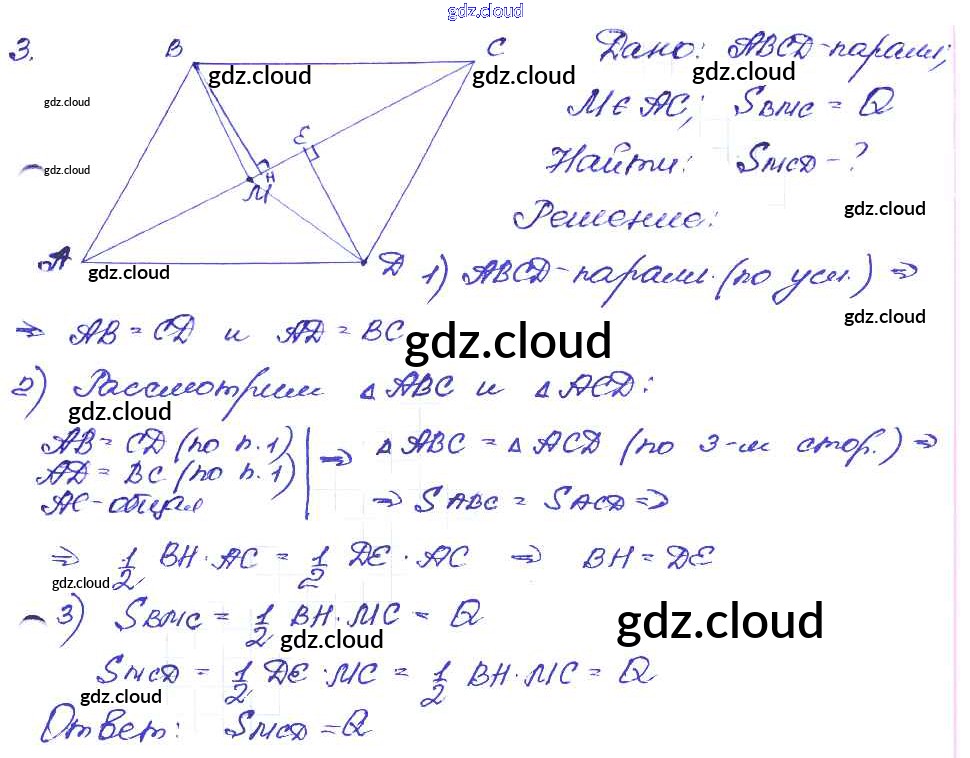 gdz.cloud
3. B C Дано: ABCD-парал.;
gdz.cloud gdz.cloud gdz.cloud
gdz.cloud
M∈AC; SBMC = Q
E
gdz.cloud
H
Найти: SMCD - ?
M
gdz.cloud
Решение:
A D
gdz.cloud
1) ABCD-парал. (по усл.) ⇒
gdz.cloud
⇒ AB = CD и AD = BC
gdz.cloud
2) Рассмотрим △ABC и △ACD:
gdz.cloud
AB = CD (по п.1) ⇒ △ABC = △ACD (по 3-м стор.) ⇒
AD = BC (по п.1)
AC-общая ⇒ SABC = SACD ⇒
⇒ 1/2 BH·AC = 1/2 DE·AC ⇒ BH = DE
gdz.cloud
3) SBMC = 1/2 BH·MC = Q
gdz.cloud gdz.cloud
SMCD = 1/2 DE·MC = 1/2 BH·MC = Q
gdz.cloud
Ответ: SMCD = Q